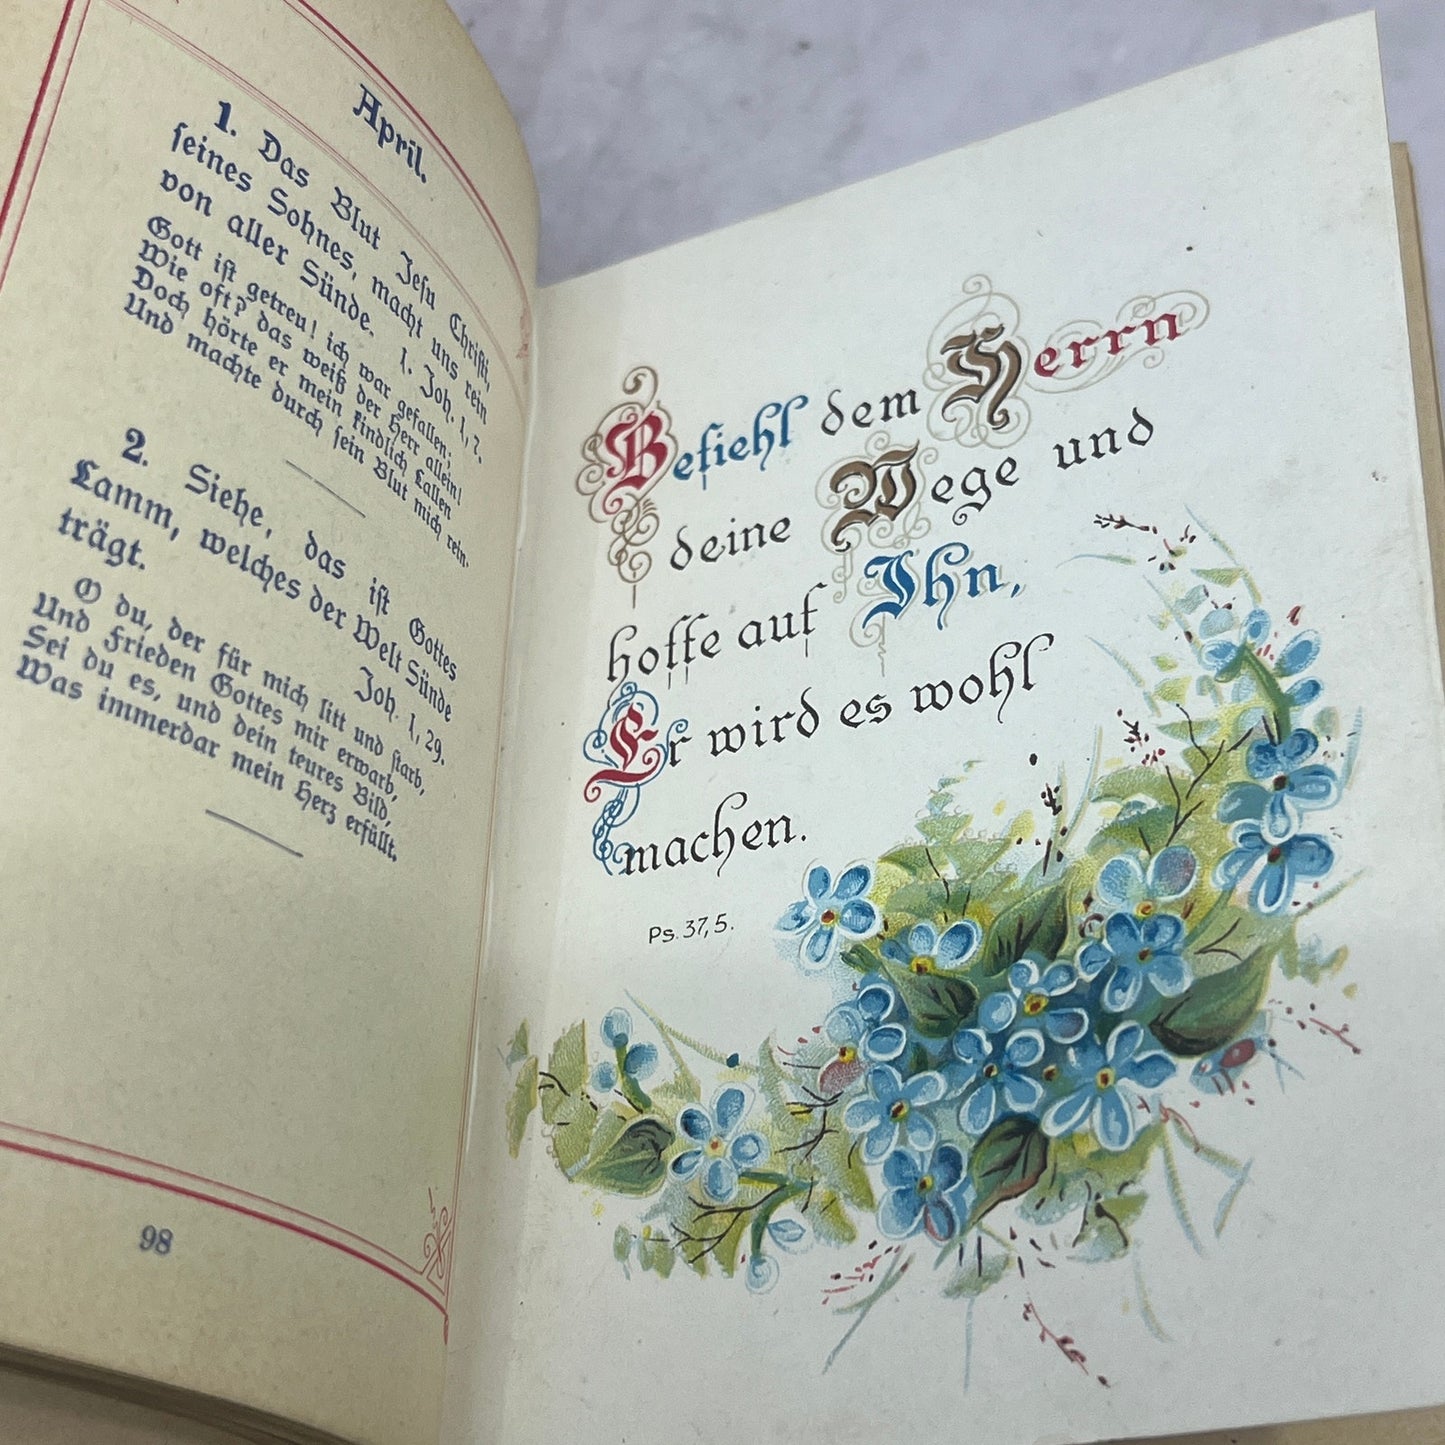 April.
1. Das Blut Jesu Christi,
seines Sohnes, macht uns rein
von aller Sünde. 1. Joh. 1, 7.
Gott ist getreu! ich war gefallen;
Wie oft? das weiß der Herr allein!
Doch hörte er mein kindlich Lallen
Und machte durch sein Blut mich rein.
2. Siehe, das ist Gottes
Lamm, welches der Welt Sünde
trägt. Joh. 1, 29.
O du, der für mich litt und starb,
Und Frieden Gottes mir erwarb,
Sei du es, und dein teures Bild,
Was immerdar mein Herz erfüllt.
98
Befiehl dem Herrn
deine Wege und
hoffe auf Ihn,
Er wird es wohl
machen.
Ps. 37, 5.